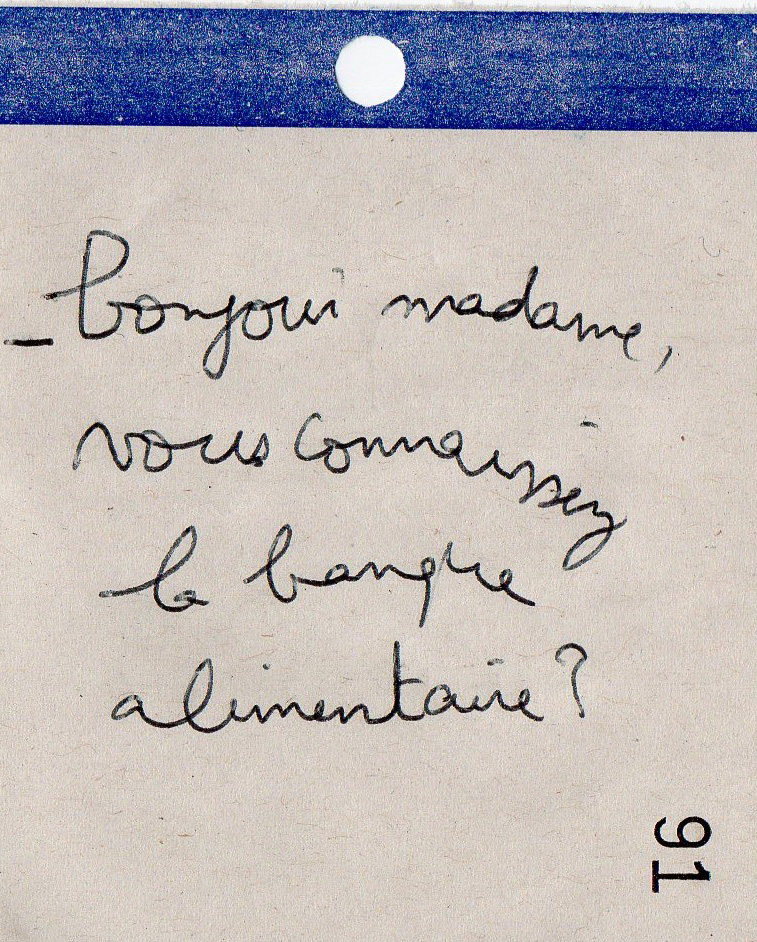 _ bonjour madame,
vous connaissez
la banque
alimentaire ?
91